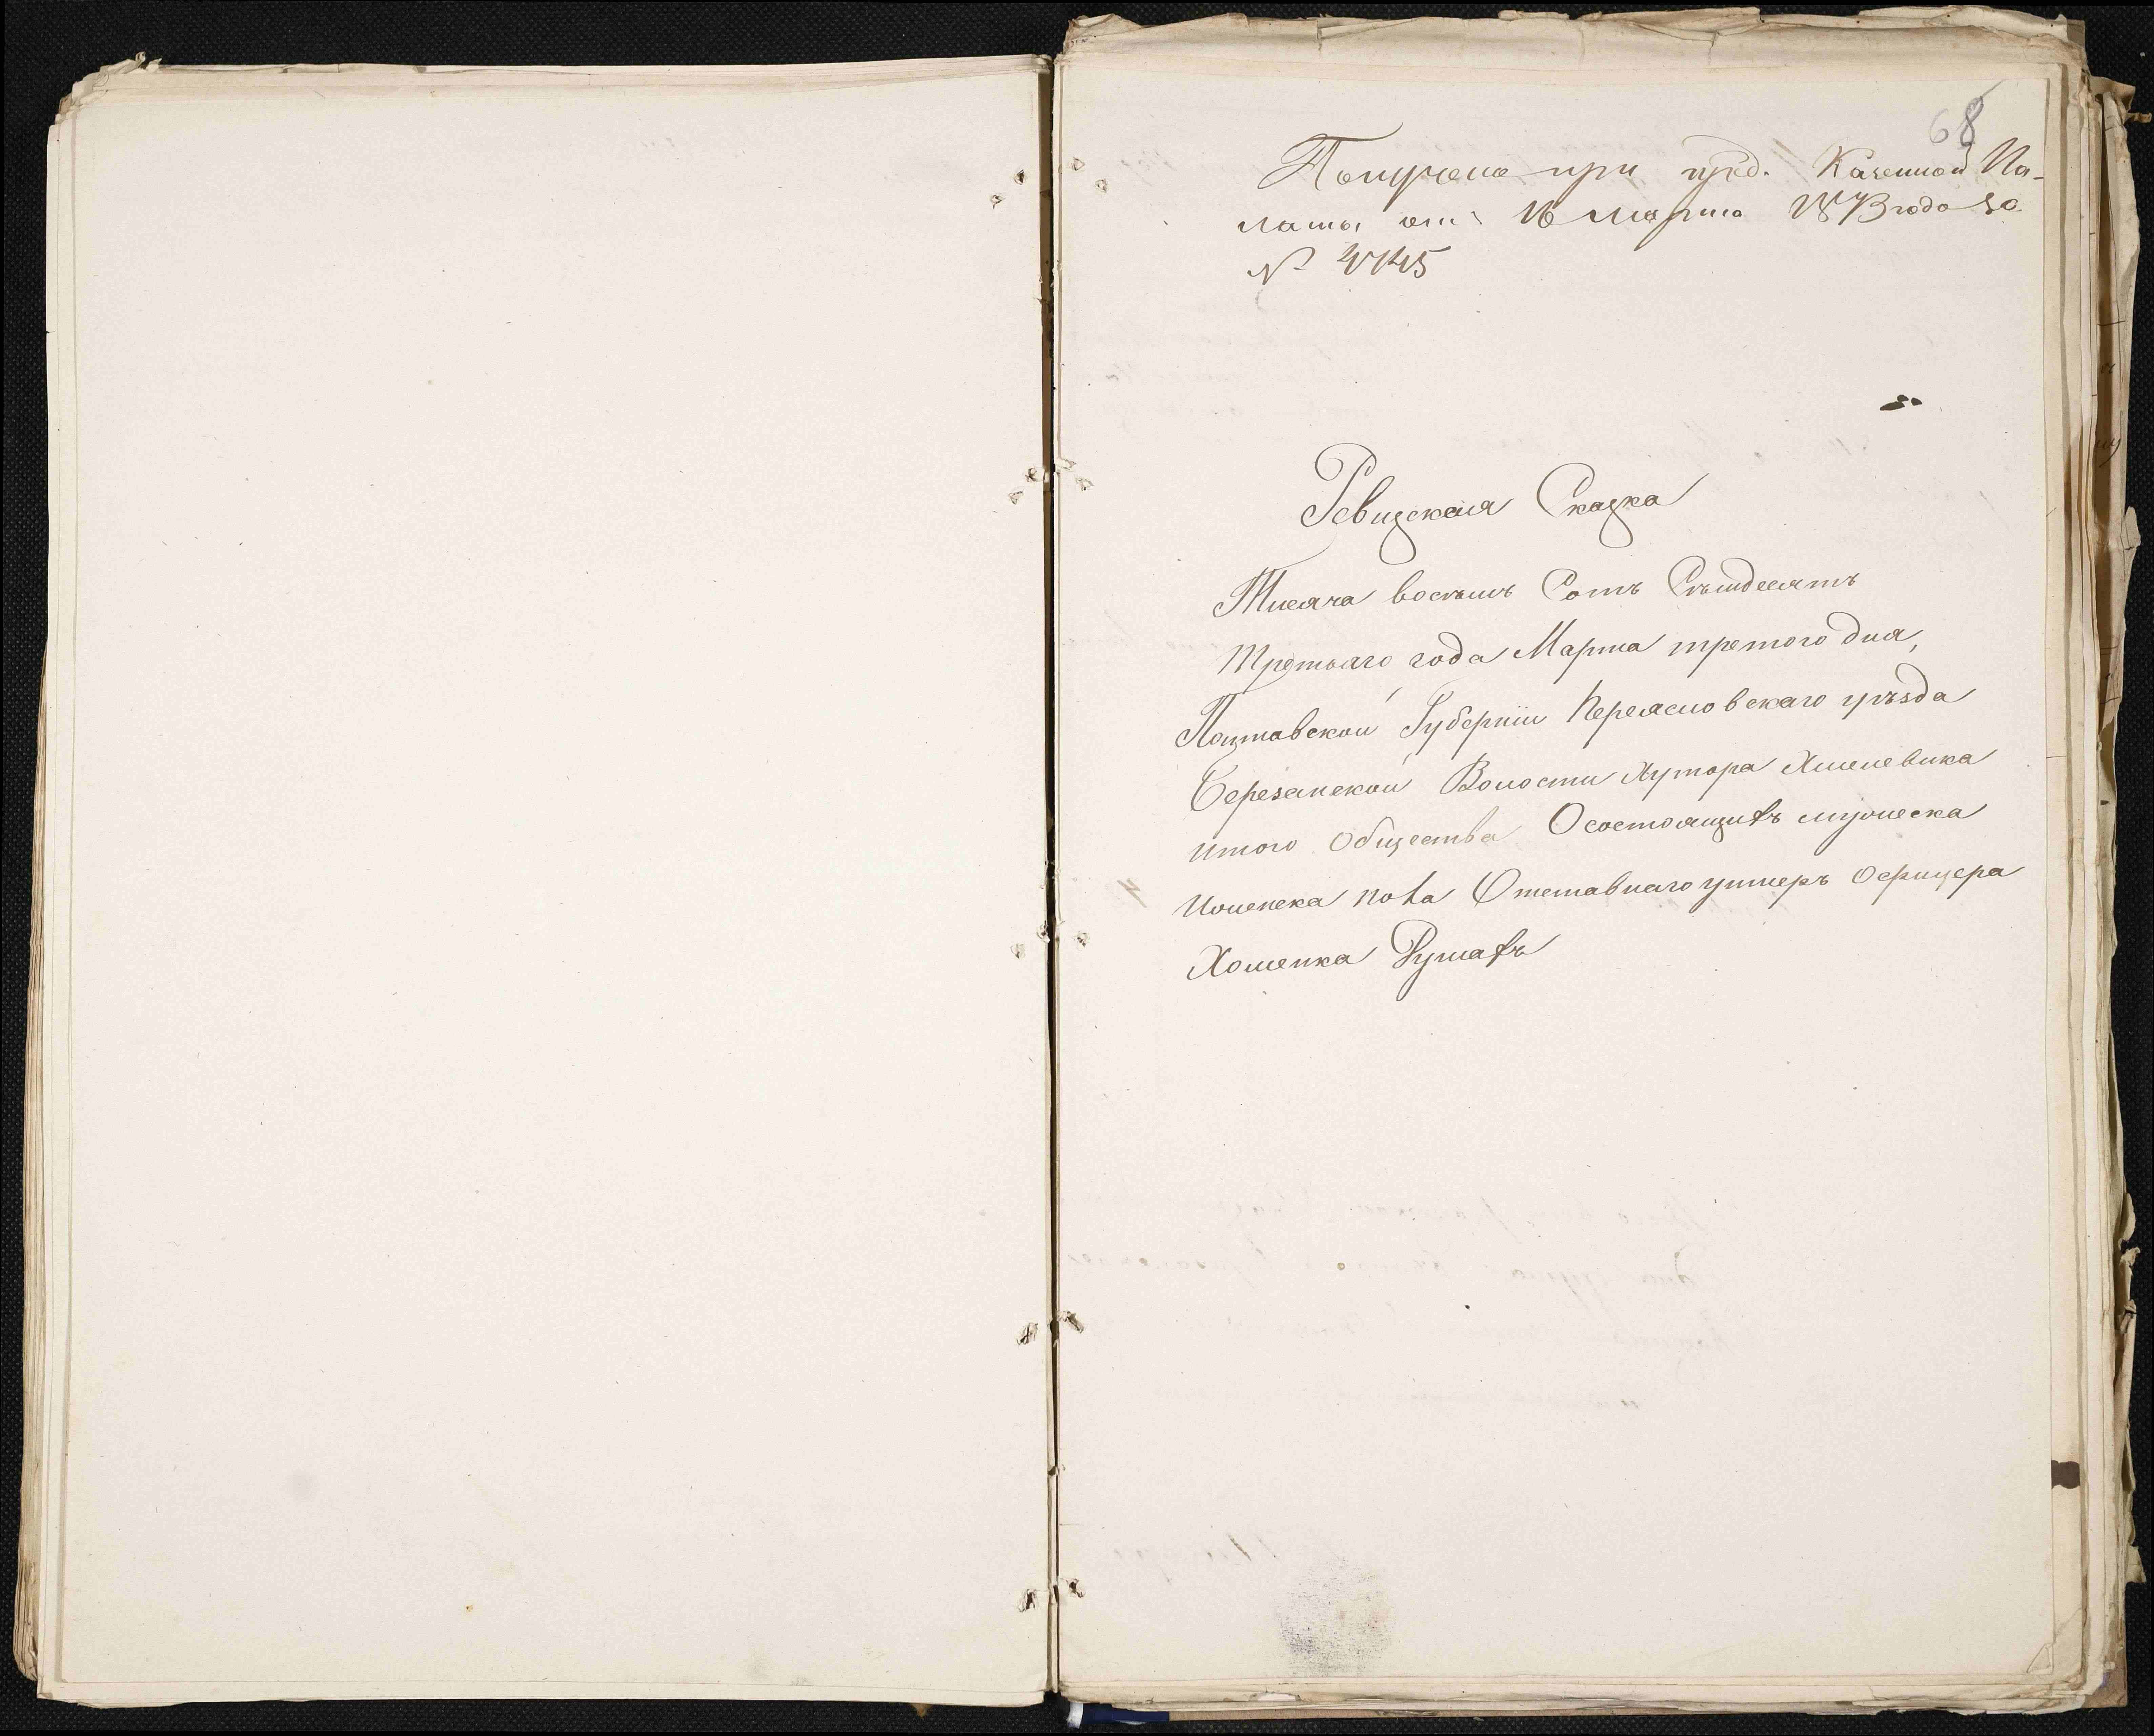 68
Получена при пред. Казенной Па-
латы от 16 марта 1873 года за
№ 4745
Ревизская Сказка
Тисяча восѣмь Сотъ Сѣмдесятъ
Третьаго года Марта третого дня,
Полтавской Губерніи Переясловскаго уѣзда
Березанской Волости Хутора Хмелевика
итого Общества О состоящихъ мужеска
иженска пола Отставнаго унтеръ Офицера
Хоменка Душахъ